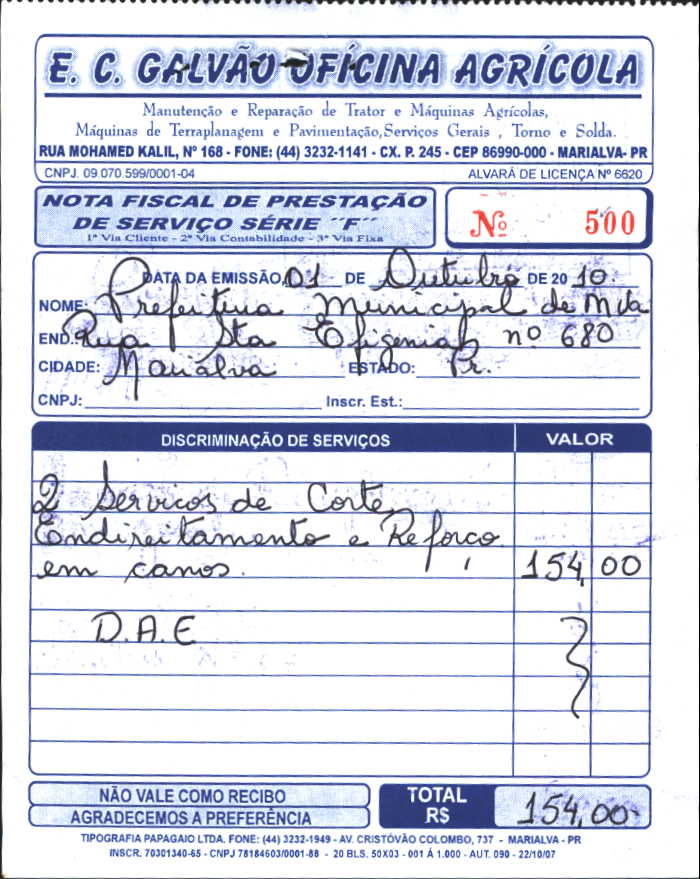 E. C. GALVÃO OFÍCINA AGRÍCOLA
Manutenção e Reparação de Trator e Máquinas Agrícolas,
Máquinas de Terraplanagem e Pavimentação,Serviços Gerais , Torno e Solda.
RUA MOHAMED KALIL, Nº 168 - FONE: (44) 3232-1141 - CX. P. 245 - CEP 86990-000 - MARIALVA- PR
CNPJ. 09.070.599/0001-04 ALVARÁ DE LICENÇA Nº 6620
NOTA FISCAL DE PRESTAÇÃO
DE SERVIÇO SÉRIE "F"
1ª Via Cliente - 2ª Via Contabilidade - 3ª Via Fixa
Nº 500
DATA DA EMISSÃO 01 DE Outubro DE 20 10
NOME: Prefeitura Municipal de Mva
END.: Rua Sta Efigenia nº 680
CIDADE: Marialva ESTADO: Pr.
CNPJ: Inscr. Est.:
DISCRIMINAÇÃO DE SERVIÇOS VALOR
2 Servicos de Corte,
Endireitamento e Reforço
em canos. 154,00
D.A.E
NÃO VALE COMO RECIBO
AGRADECEMOS A PREFERÊNCIA
TOTAL
R$ 154,00
TIPOGRAFIA PAPAGAIO LTDA. FONE: (44) 3232-1949 - AV. CRISTÓVÃO COLOMBO, 737 - MARIALVA - PR
INSCR. 70301340-65 - CNPJ 78184603/0001-88 - 20 BLS. 50X03 - 001 Á 1.000 - AUT. 090 - 22/10/07